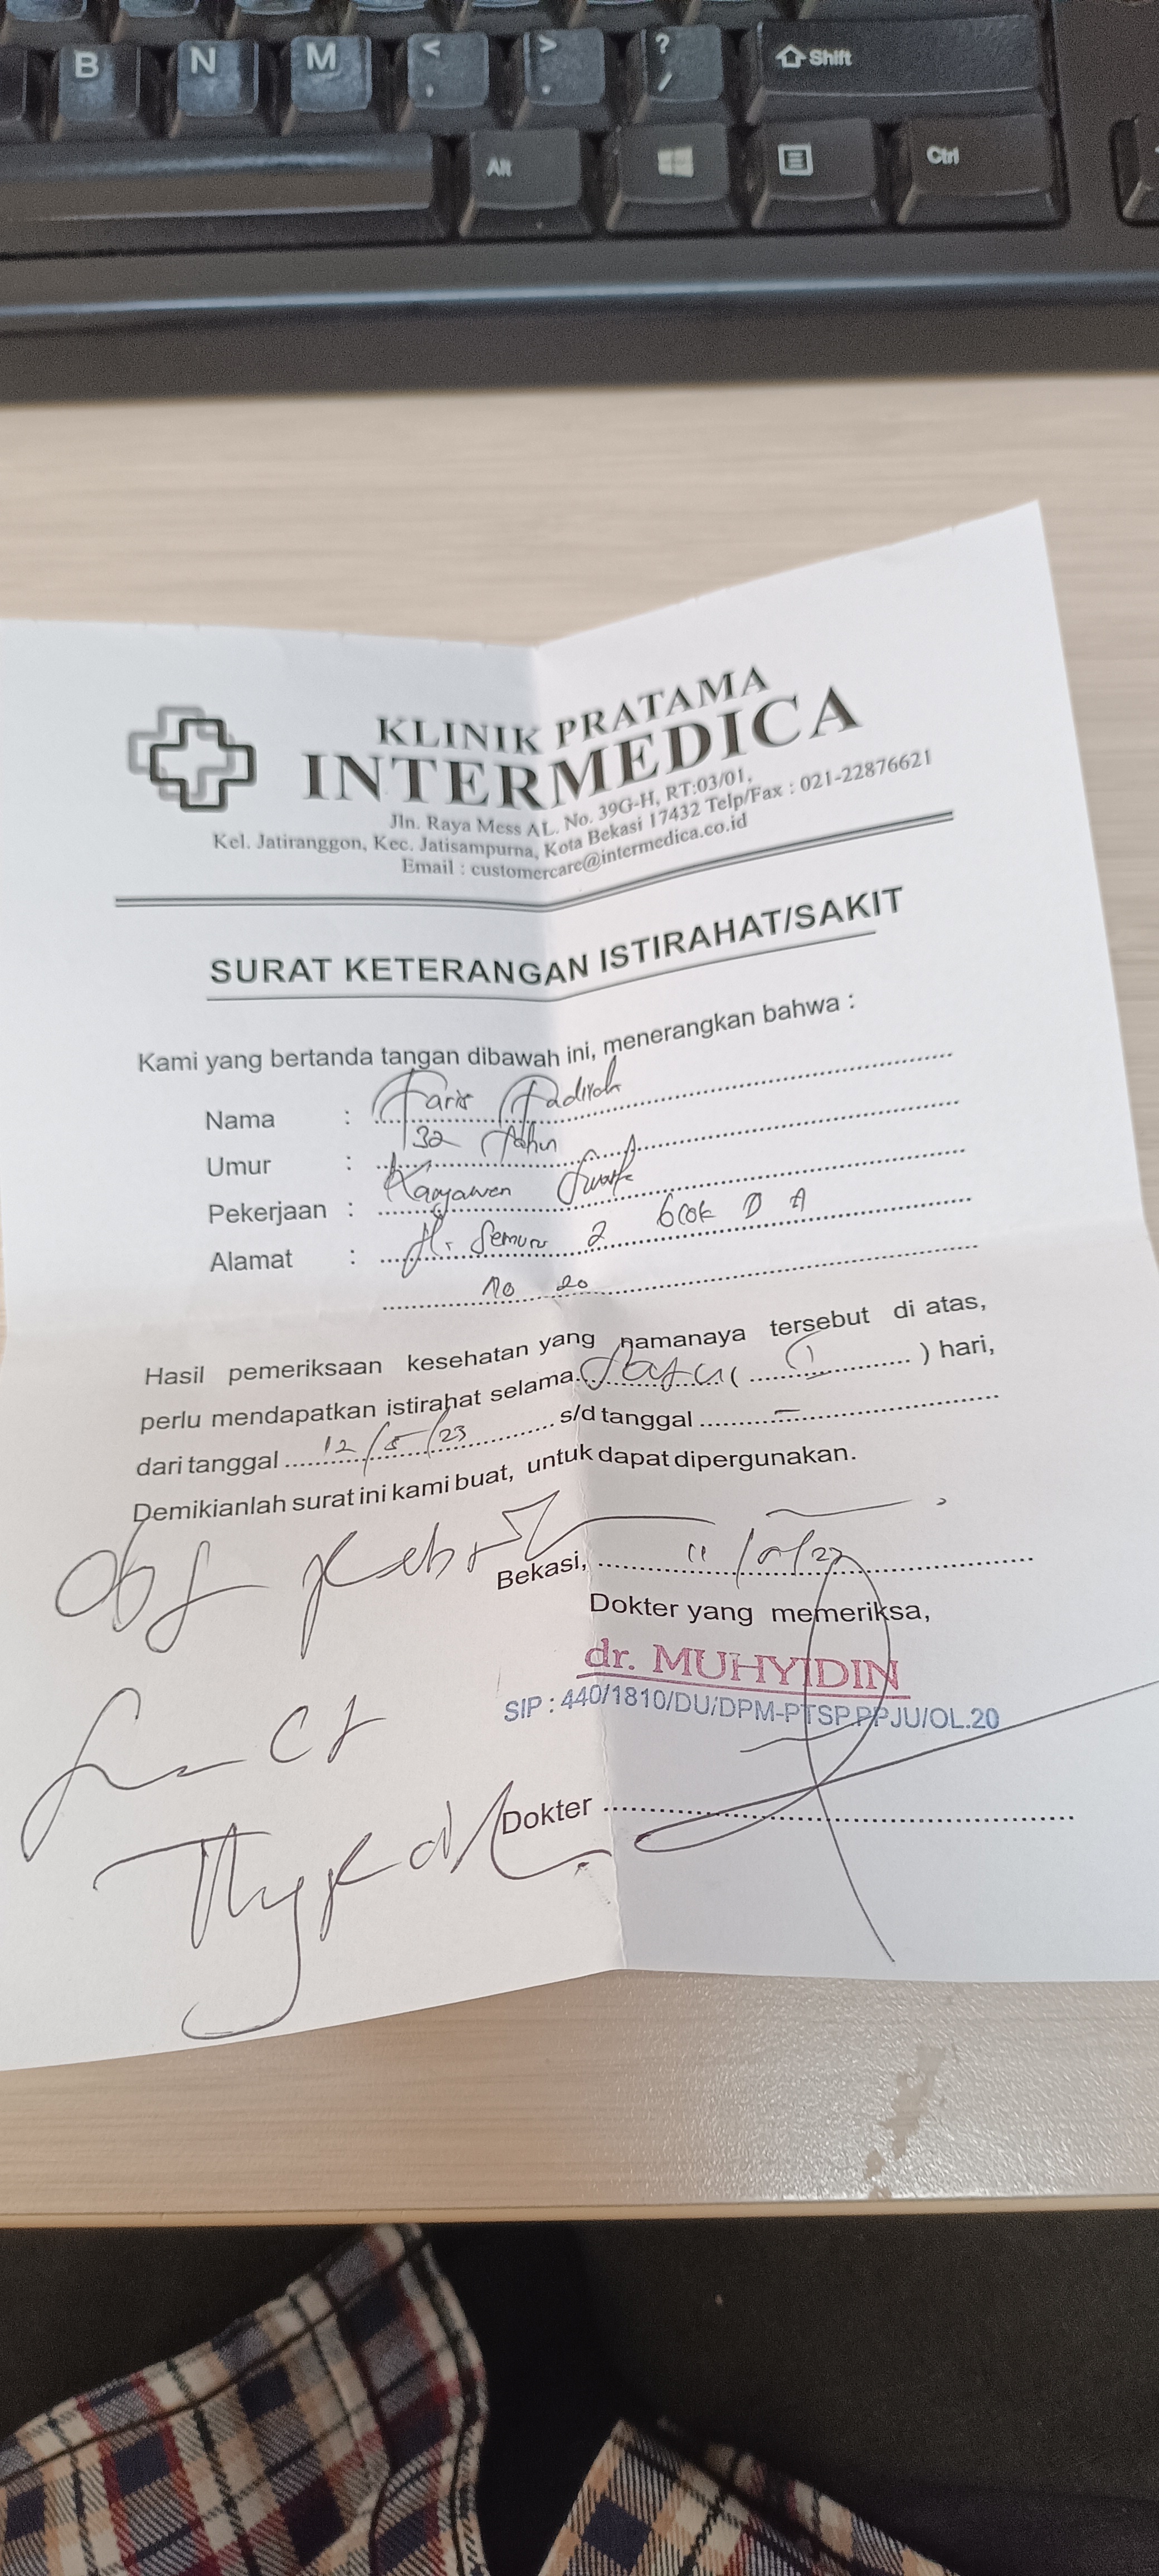 B N M < , > . ? / Shift
Alt Ctrl
KLINIK PRATAMA
INTERMEDICA
Jln. Raya Mess AL. No. 39G-H, RT:03/01,
Kel. Jatiranggon, Kec. Jatisampurna, Kota Bekasi 17432 Telp/Fax : 021-22876621
Email : customercare@intermedica.co.id
SURAT KETERANGAN ISTIRAHAT/SAKIT
Kami yang bertanda tangan dibawah ini, menerangkan bahwa :
Nama : Faris Fadirah
Umur : 32 Tahun
Pekerjaan : Karyawan
Alamat : Jl. Semuru 2 blok D A
no 20
Hasil pemeriksaan kesehatan yang namanaya tersebut di atas,
perlu mendapatkan istirahat selama Satu ( 1 ) hari,
dari tanggal 12/5/23 s/d tanggal -
Demikianlah surat ini kami buat, untuk dapat dipergunakan.
Bekasi, 11/5/23
Dokter yang memeriksa,
dr. MUHYIDIN
SIP : 440/1810/DU/DPM-PTSP.PPJU/OL.20
Dokter